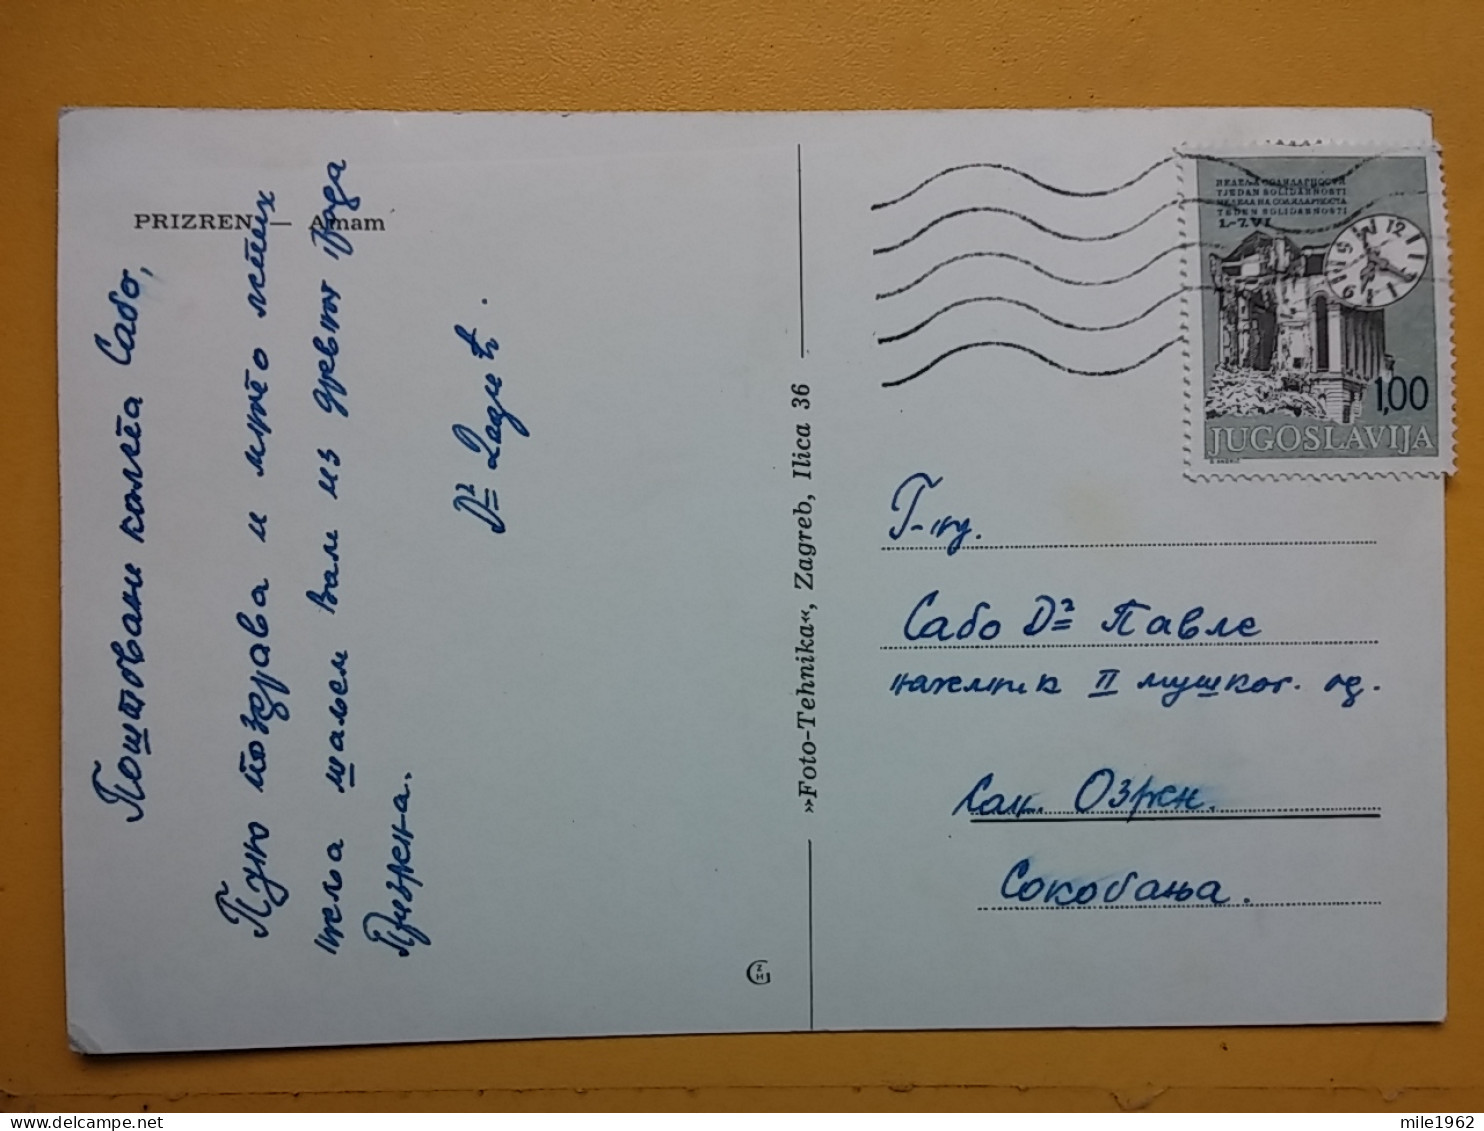 PRIZREN — Amam
Поштовани колега Сабо,
Пуно поздрава и много лепих
жеља шаљем Вам из древног града
Призрена.
Dr
»Foto-Tehnika«, Zagreb, Ilica 36
НЕДЕЉА СОЛИДАРНОСТИ
TJEDAN SOLIDARNOSTI
НЕДЕЛА НА СОЛИДАРНОСТА
TEDEN SOLIDARNOSTI
1.-7.VI
1,00
JUGOSLAVIJA
Г-ну.
Сабо Dr Павле
начелник II мушког. од.
Сан. Озрен.
Сокобања.
mile1962